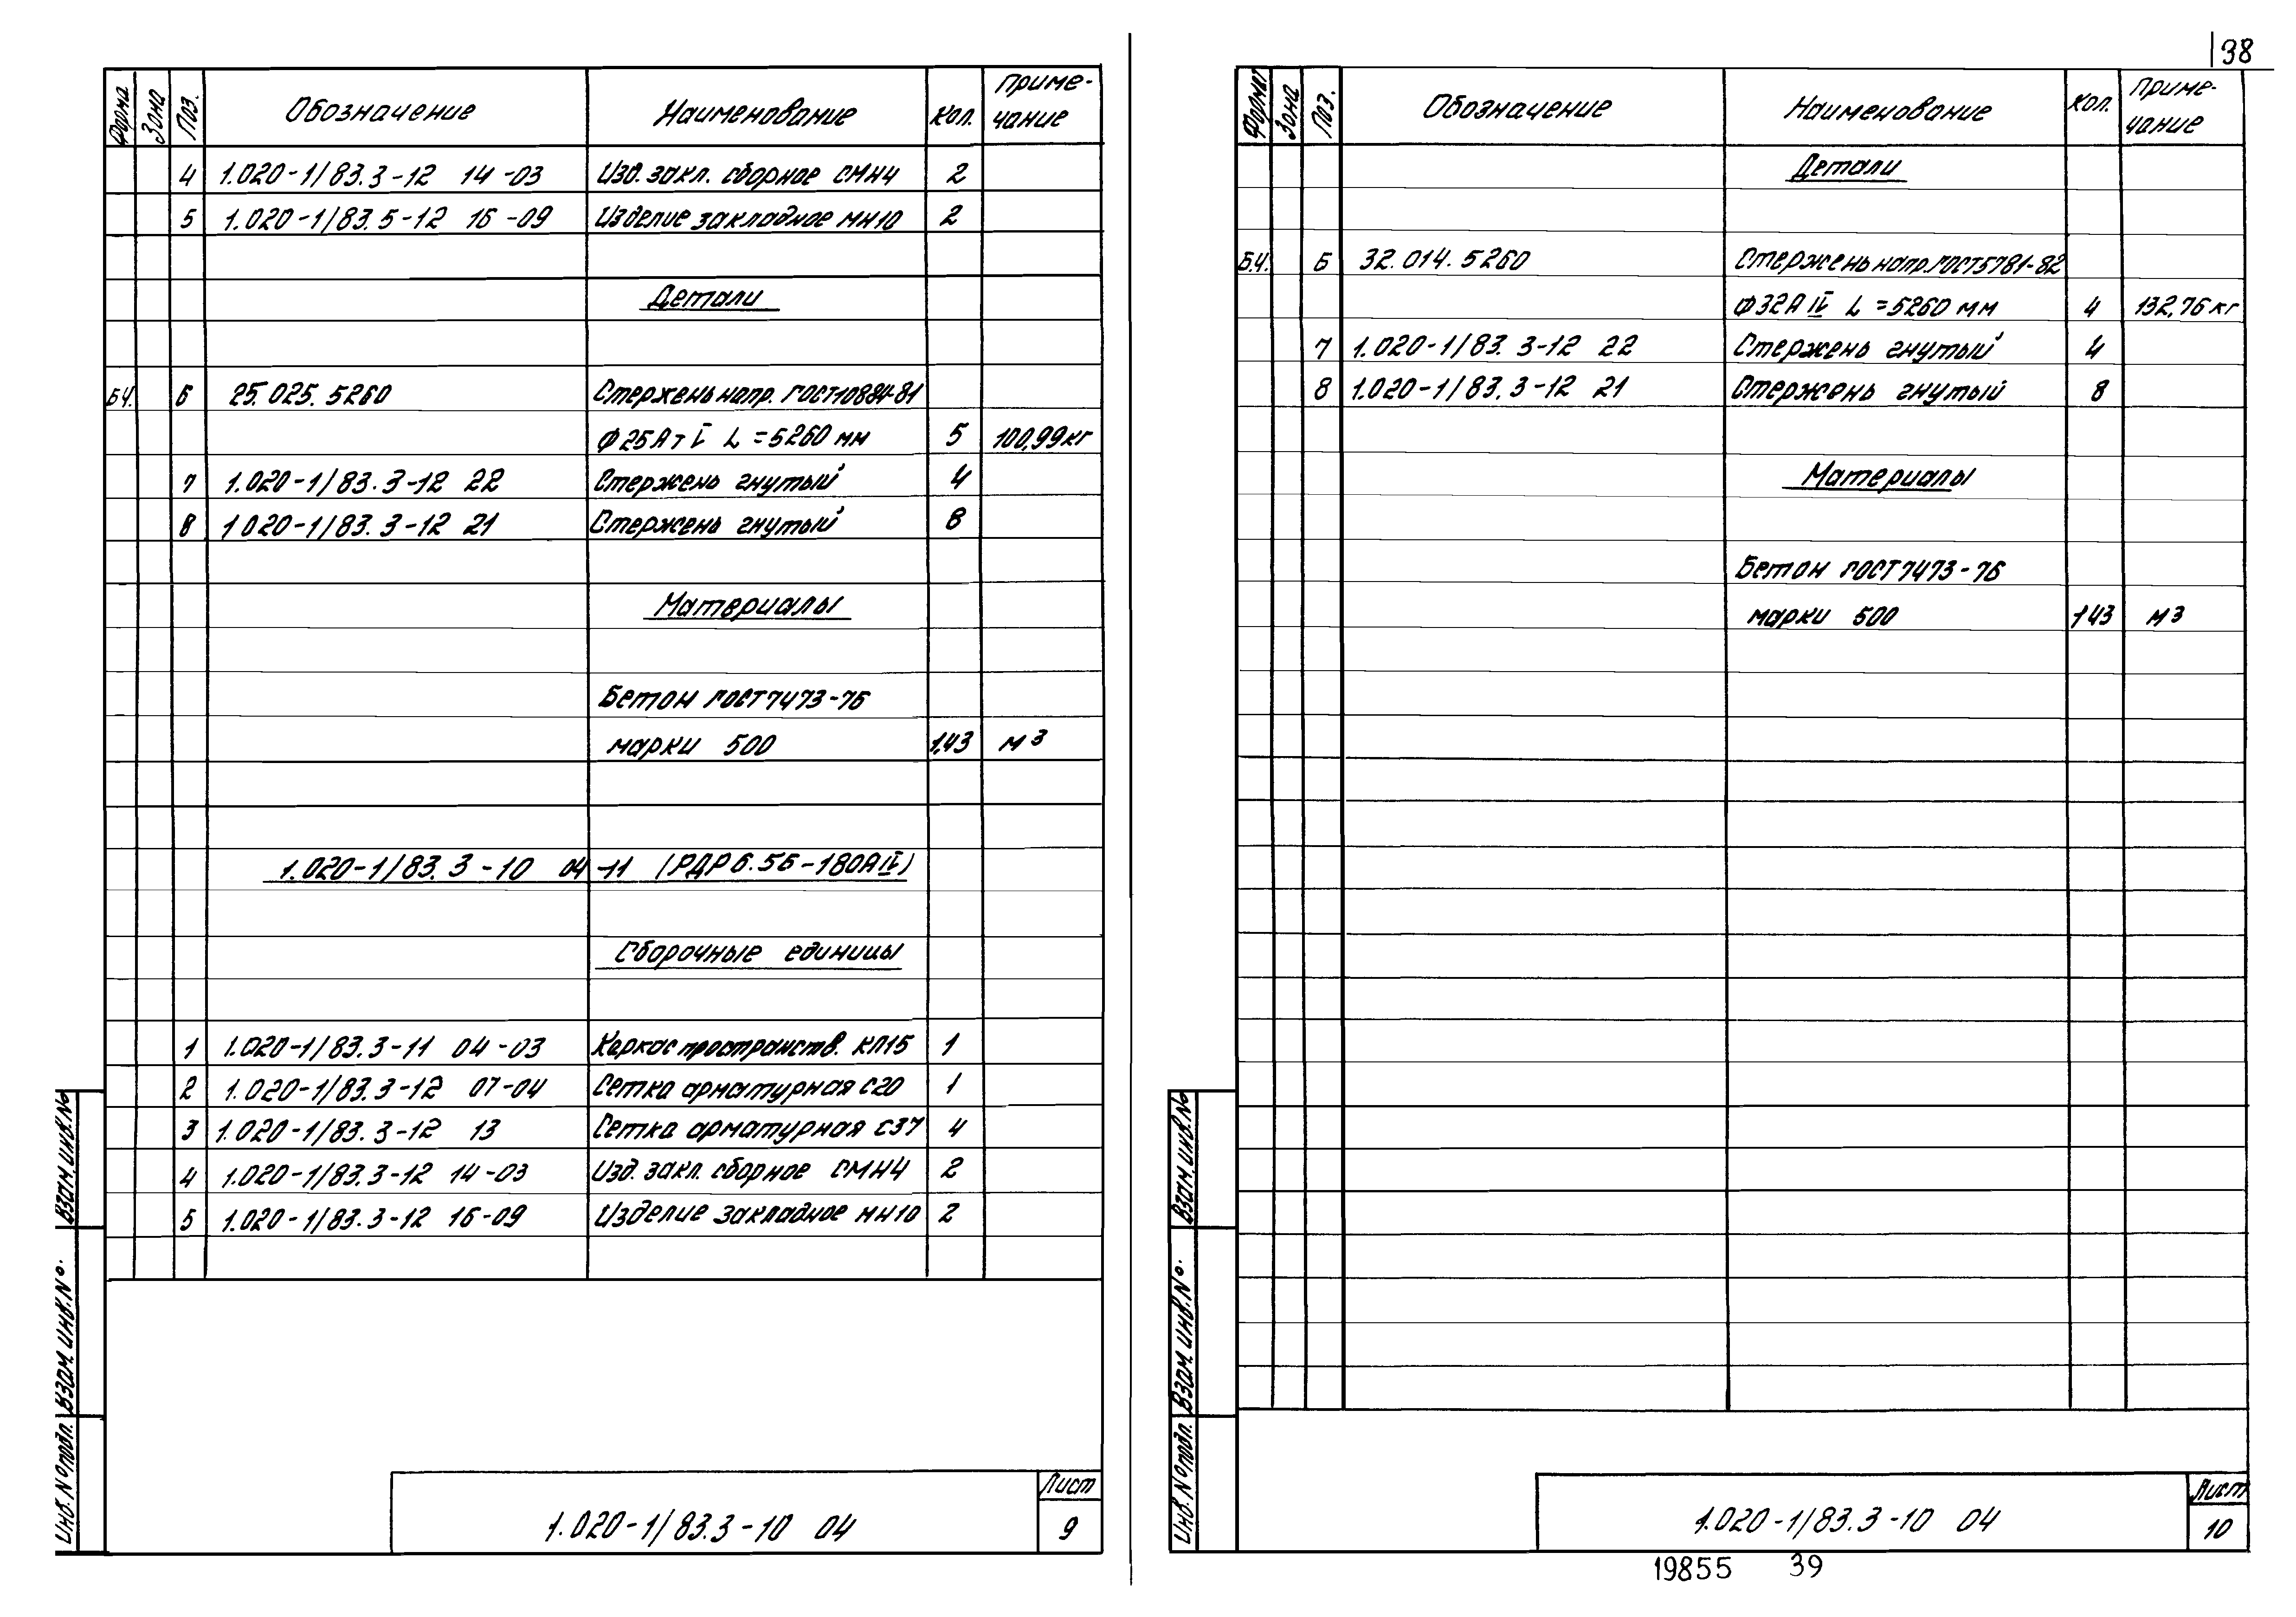 38
Форма Зона Поз. Обозначение Наименование Кол. Приме-
чание
4 1.020-1/83.3-12 14-03 Изд. закл. сборное СМН4 2
5 1.020-1/83.5-12 16-09 Изделие закладное МН10 2
Детали
Б.Ч. 6 25.025.5260 Стержень напр. ГОСТ10884-81
Ф25АтV L=5260 мм 5 100,99кг
7 1.020-1/83.3-12 22 Стержень гнутый 4
8 1.020-1/83.3-12 21 Стержень гнутый 8
Материалы
Бетон ГОСТ7473-76
марки 500 1,43 м3
1.020-1/83.3-10 04-11 (РДР6.56-180АIV)
Сборочные единицы
1 1.020-1/83.3-11 04-03 Каркас пространств. КП15 1
2 1.020-1/83.3-12 07-04 Сетка арматурная С20 1
3 1.020-1/83.3-12 13 Сетка арматурная С37 4
4 1.020-1/83.3-12 14-03 Изд. закл. сборное СМН4 2
5 1.020-1/83.3-12 16-09 Изделие закладное МН10 2
Взам. инв. №
Взам. инв. №.
Инв. № подл.
1.020-1/83.3-10 04
Лист
9
Формат Зона Поз. Обозначение Наименование Кол. Приме-
чание
Детали
Б.Ч. 6 32.014.5260 Стержень напр. ГОСТ5781-82
Ф32АIV L=5260 мм 4 132,76кг
7 1.020-1/83.3-12 22 Стержень гнутый 4
8 1.020-1/83.3-12 21 Стержень гнутый 8
Материалы
Бетон ГОСТ7473-76
марки 500 1,43 м3
Взам. инв. №
Взам. инв. №.
Инв. № подл.
1.020-1/83.3-10 04
Лист
10
19855 39